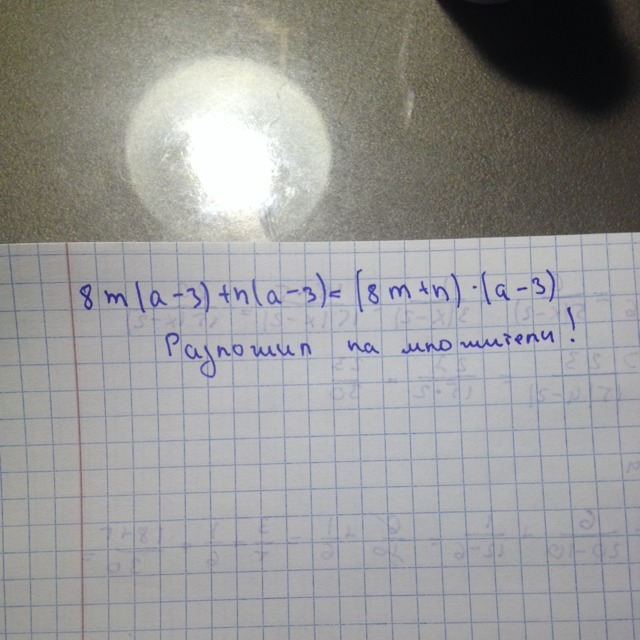 8m(a-3)+n(a-3)=(8m+n)·(a-3)
Разложил на множители!